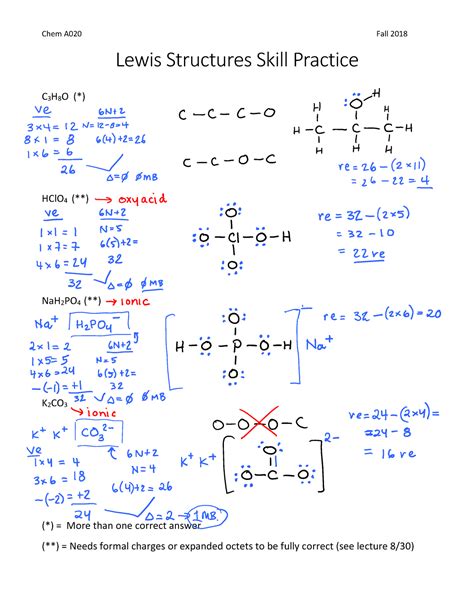 Chem A020 Fall 2018
Lewis Structures Skill Practice
C3H8O (*)
ve 6N+2
3×4 = 12 N=12-8=4
8×1 = 8 6(4)+2=26
1×6 = 6
26 Δ=∅ ∅MB
C – C – C – O
C – C – O – C
O H
H H
H – C – C – C – H
H H H
re = 26 – (2×11)
= 26 – 22 = 4
HClO4 (**) → oxyacid
ve 6N+2
1×1 = 1 N=5
1×7 = 7 6(5)+2=
4×6 = 24 32
32 Δ=∅ ∅MB
O
O – Cl – O – H
O
re = 32 – (2×5)
= 32 – 10
= 22 re
NaH2PO4 (**) → ionic
Na+ H2PO4–
2×1 = 2 6N+2
1×5 = 5 N=5
4×6 = 24 6(5)+2=
–(–1) = +1 32
32 Δ=∅ ∅MB
O
H – O – P – O – H
O
–
Na+
re = 32 – (2×6) = 20
K2CO3 → ionic
K+ K+ CO3 2–
ve 6N+2
1×4 = 4 N=4
3×6 = 18 6(4)+2= 26
–(–2) = +2
24 Δ=2 → 1MB.
O – O – O – C
K+ K+
O
O – C – O
2–
re = 24 – (2×4) =
= 24 – 8
= 16 re
(*) = More than one correct answer
(**) = Needs formal charges or expanded octets to be fully correct (see lecture 8/30)